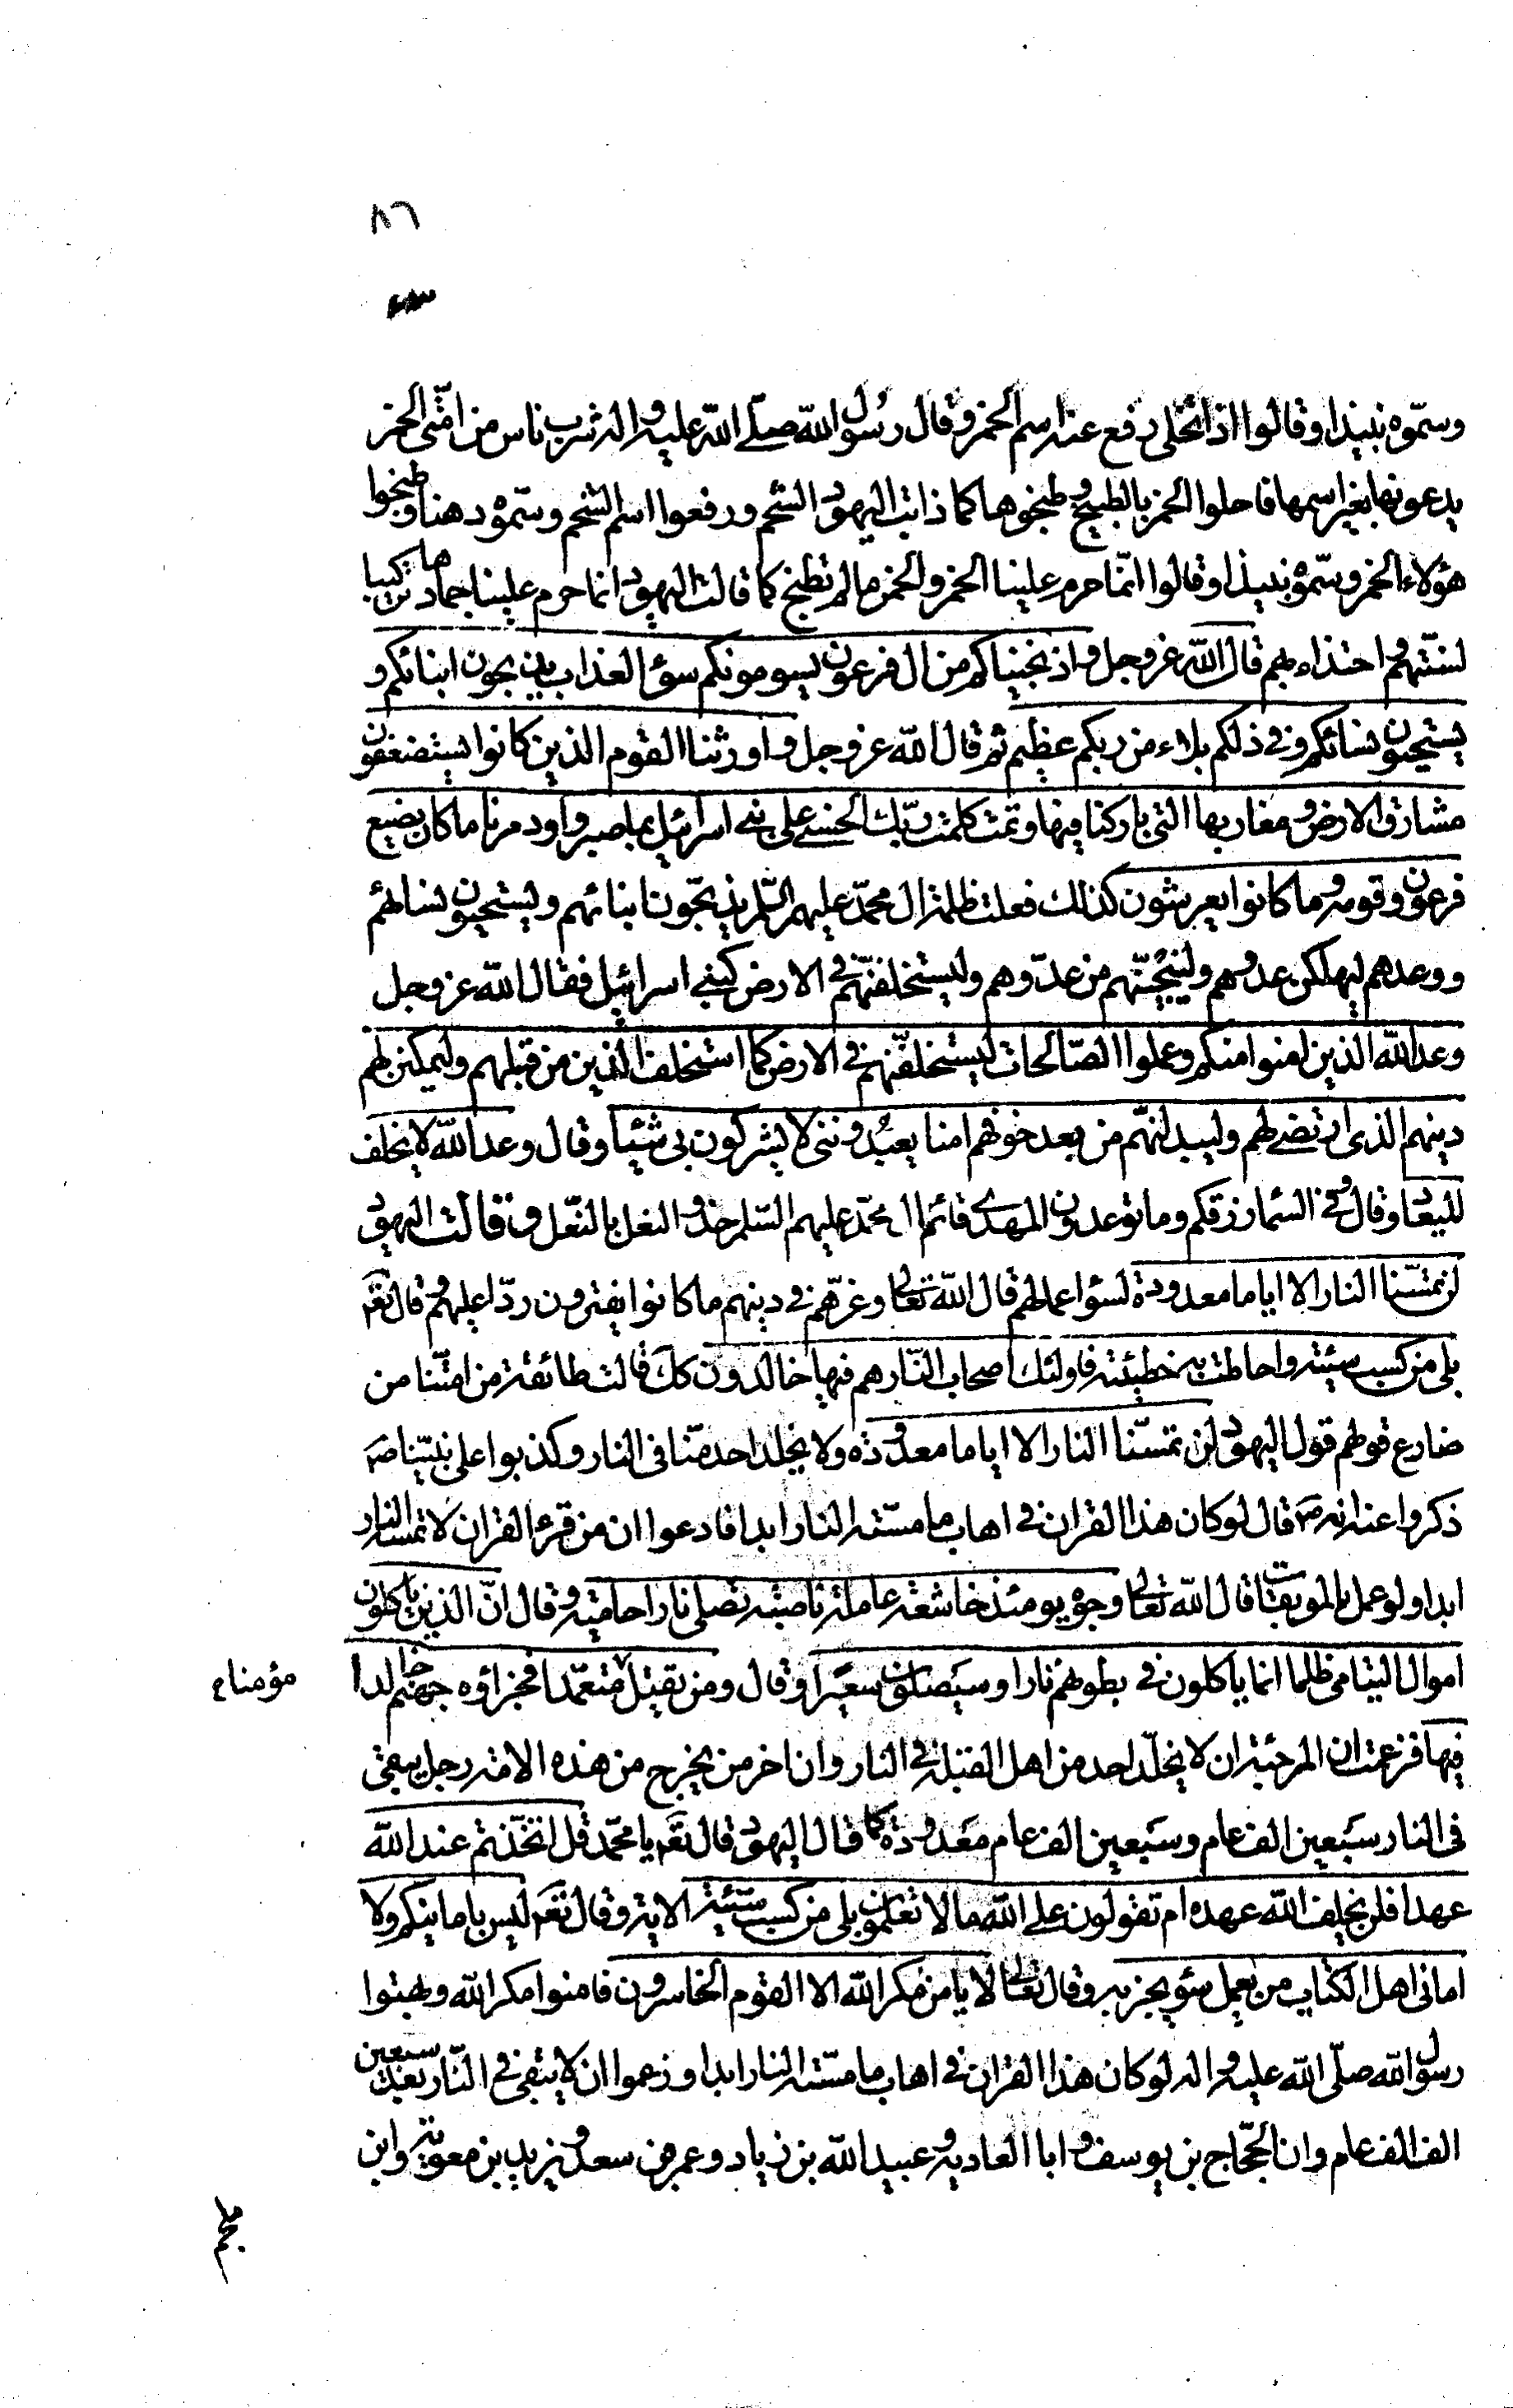 ٨٦
وسمّوه نبيذا وقالوا اذا انحلى رفع عنه اسم الخمر وقال رسول الله صلّى الله عليه واله شرب ناس من امّتى الخمر
يدعونها بغير اسمها فاحلوا الخمر بالطبيخ وطبخوها كما ذابت اليهود الشحم ورفعوا اسم الشحم وسمّوه دهنا وطبخوا
هؤلاء الخمر وسمّوه نبيذا وقالوا انّما حرم علينا الخمر والخمر ما لم تطبخ كما قالت اليهود انما حرم علينا جمادها تركيبا
لسنّتهم واحتذاء بهم قال الله عز وجل واذ نجيناكم من ال فرعون يسومونكم سؤ العذاب يذبحون ابنائكم و
يستحيون نسائكم وفى ذلكم بلاء من ربكم عظيم ثم قال الله عز وجل واورثنا القوم الذين كانوا يستضعفون
مشارق الارض ومغاربها التى باركنا فيها وتمت كلمت ربّك الحسنى على بنى اسرائيل بما صبروا ودمرنا ما كان يصنع
فرعون وقومه وما كانوا يعرشون كذلك فعلت ظلمة ال محمّد عليهم السّلم يذبّحون ابنائهم ويستحيون نسائهم
ووعدهم ليهلكن عدوهم ولينجينّهم من عدّوهم وليستخلفنّهم فى الارض كبنى اسرائيل فقال الله عز وجل
وعد الله الذين امنوا منكم وعملوا الصّالحات ليستخلفنّهم فى الارض كما استخلف الذين من قبلهم وليمكنن لهم
دينهم الذى ارتضى لهم وليبدلنهّم من بعد خوفهم امنا يعبدونني لا يشركون بى شيئا وقال وعد الله لا يخلف
الميعاد وقال وفى السّماء رزقكم وما توعدون المهدى قائم ال محمّد عليهم السّلم حذو النعل بالنّعل وقالت اليهود
لن تمسّنا النار الا اياما معدودة لسؤ اعمالهم قال الله تعالى وغرّهم فى دينهم ما كانوا يفترون ردّا عليهم وقال تعم
بلى من كسب سيئة واحاطت به خطيئته فاولئك اصحاب النّار هم فيها خالدون كك قالت طائفة من امتّنا من
ضارع قولهم قول اليهود لن تمسّنا النار الا اياما معدودة ولا يخلد احد منّا فى النار وكذبوا على نبيّنا صم
ذكروا عنه انه صم قال لو كان هذا القران فى اهاب ما مسّته النار ابدا فادعوا ان من قرء القران لا تمسه النار
ابدا ولو عمل بالموبقات قال الله تعالى وجوه يومئذ خاشعة عاملة ناصبة تصلى نارا حامية وقال انّ الذين ياكلون
اموال اليتامى ظلما انما ياكلون فى بطونهم نارا وسيصلون سعيرا وقال ومن يقتل متعمّدا فجزاؤه جهنم خالدا
مؤمنا
فيها فزعمت ان المرجئة ان لا يخلّد احد من اهل القبلة فى النار وان اخر من يخرج من هذه الامة رجل يبقى
فى النار سبعين الف عام وسبعين الف عام معدودة كما قال اليهود قال تعم يا محمّد قل اتخّذتم عند الله
عهدا فلن يخلف الله عهده ام تقولون على الله ما لا تعلمون بلى من كسب سيّئة الاية وقال تعم ليس بامانيكم ولا
امانى اهل الكتاب من يعمل سؤ يجز به وقال تعالى لا يامن مكر الله الا القوم الخاسرون فامنوا مكر الله وبهتوا
رسول الله صلّى الله عليه واله لو كان هذا القران فى اهاب ما مسّته النار ابدا وزعموا ان لا يبقى فى النّار بعد سبعين
الف الف عام وان الحجّاج بن يوسف وابا العادية وعبيد الله بن زياد وعمر بن سعد ويزيد بن معوية وابن
ملجم